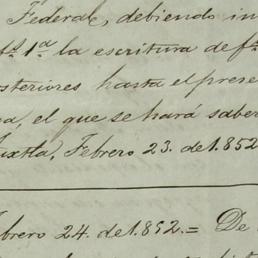 Federal, debiendo in
fs. 1ª la escritura de fs.
steriores hasta el prese
a, el que se hará saber
Tuxtla, Febrero 23. de 1852
brero 24. de 1852.= De